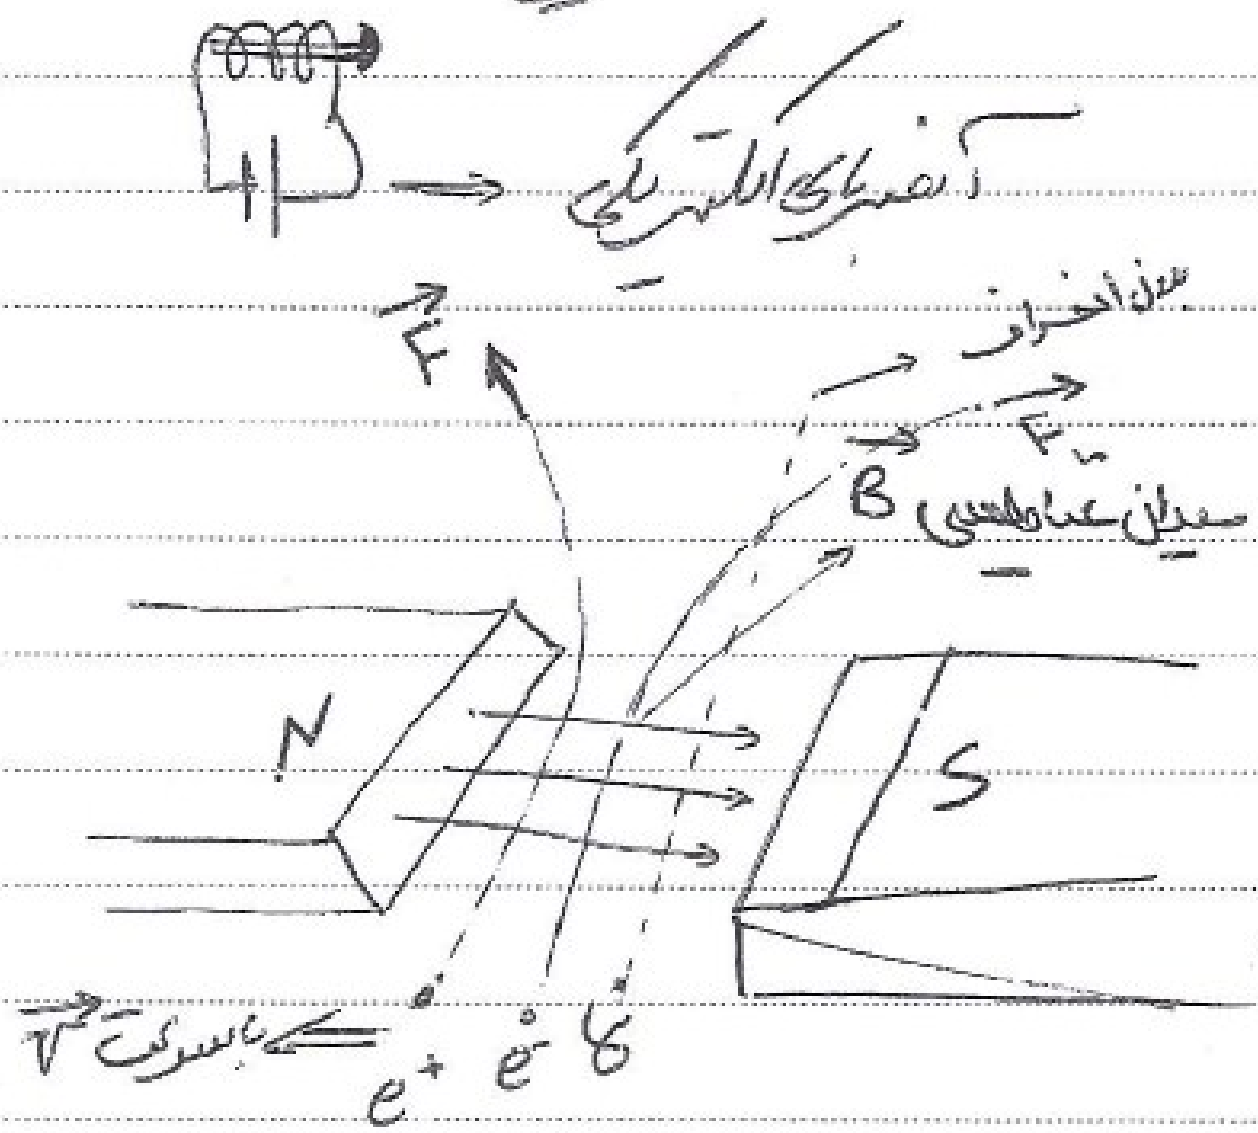 آهنربای الکتریکی
بدون انحراف
F
F
B میدان مغناطیسی
N
S
با سرعت V
e+ e-